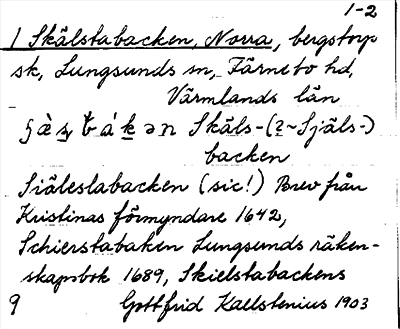 1-2
1 Skälstabacken, Norra, bergstorp
sk, Lungsunds sn, Färnebo hd,
Värmlands län
Skäls-(?~Själs-)
backen
Siäleslabacken (sic!) Brev från
Kristinas förmyndare 1642,
Schierstabaken Lungsunds räken-
skapsbok 1689, Skielstabackens
9 Gottfrid Kallstenius 1903